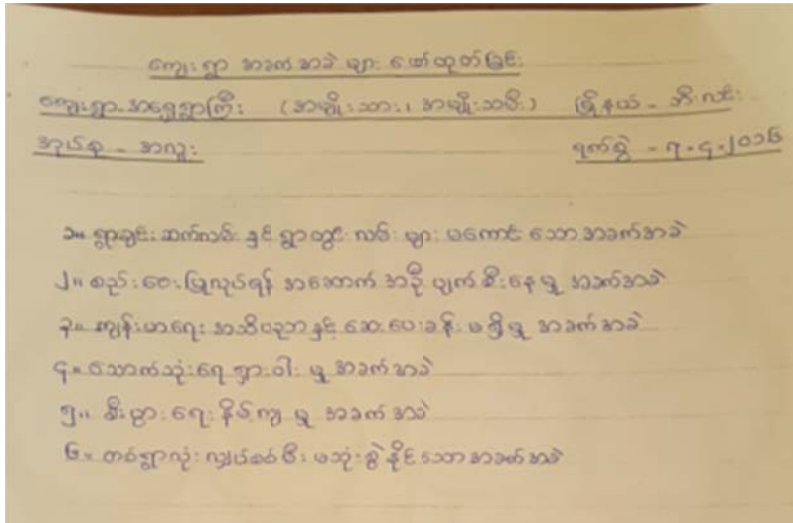 ကျေးရွာ အခက်အခဲ များ ဖော်ထုတ်ခြင်း
ကျေးရွာ-အရှေ့ရွာကြီး (အမျိုးသား၊ အမျိုးသမီး) မြို့နယ် - ဘီးလင်း
အုပ်စု - အလူး ရက်စွဲ - ၇-၄-၂၀၁၆
၁။ ရွာချင်းဆက်လမ်း နှင့် ရွာတွင်းလမ်း များ မကောင်းသော အခက်အခဲ
၂။ စည်းဝေးပြုလုပ်ရန် အဆောက်အဦ ပျက်စီးနေမှု အခက်အခဲ
၃။ ကျန်းမာရေး အသိပညာနှင့် ဆေးပေးခန်းမရှိမှု အခက်အခဲ
၄။ သောက်သုံးရေ ရှားပါးမှု အခက်အခဲ
၅။ စီးပွားရေး နိမ့်ကျမှု အခက်အခဲ
၆။ တစ်ရွာလုံး လျှပ်စစ်မီး မသုံးစွဲနိုင်သော အခက်အခဲ